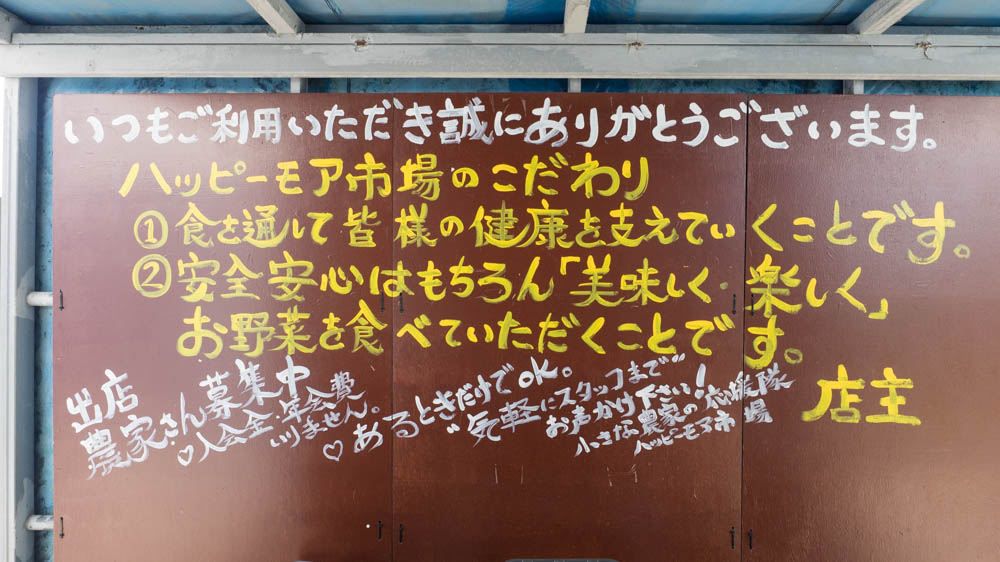 いつもご利用いただき誠にありがとうございます。
ハッピーモア市場のこだわり
①食を通して皆様の健康を支えていくことです。
②安全安心はもちろん「美味しく・楽しく」
お野菜を食べていただくことです。
店主
出店
農家さん募集中
♡入会金・年会費
いりません。
♡あるときだけでOK。
気軽にスタッフまで
お声かけ下さい！
小さな農家の応援隊
ハッピーモア市場